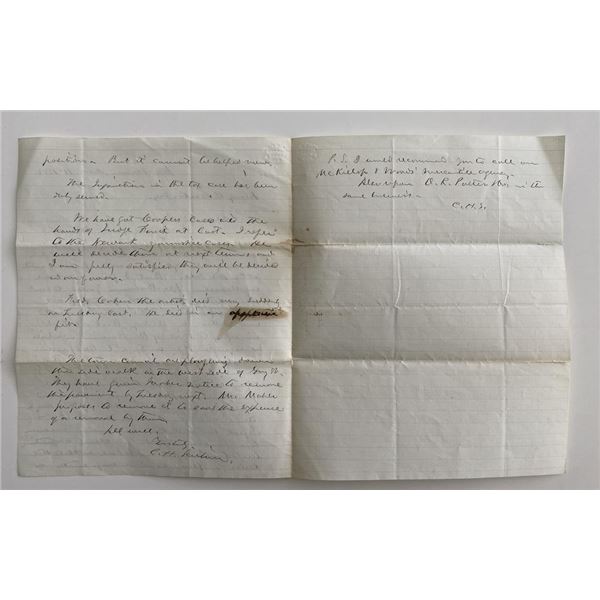 positions. But it cannot be helped now.
The Injunction in the case has been
duly served.
We have got Coopers Cases into the
hands of Judge at last. I refer
to the Newark cases. He
will decide them at next term and
I am fully satisfied they will be decided
in our favor.
Fred. Cohen the artist, died very suddenly
on Tuesday last. He died in an
fit.
The town Council are ploughing down
the side walk on the west side of
They have given notice to remove
the pavement by Tuesday next. Mr.
proposes to remove it to save the expense
of a removal by them
All well.
Truly,
C. H.
P. S. I would recommend you to call on
McKillop & Woods' Mercantile agency.
Also upon O. R. Potter in the
same business.
C.H.S.